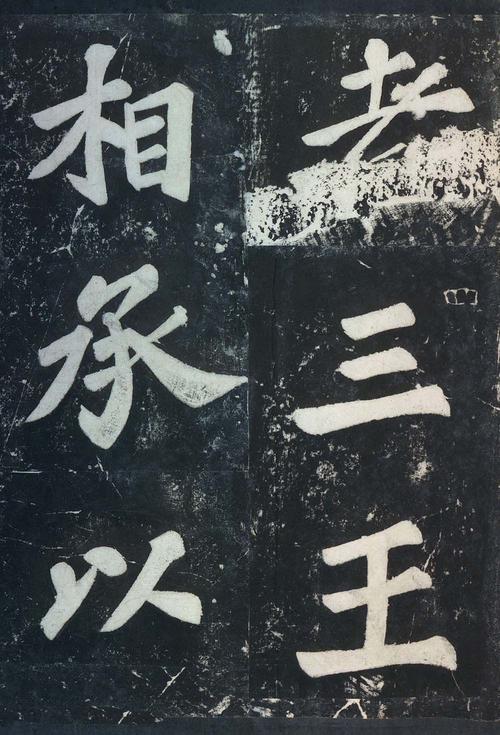 者三王
相承以